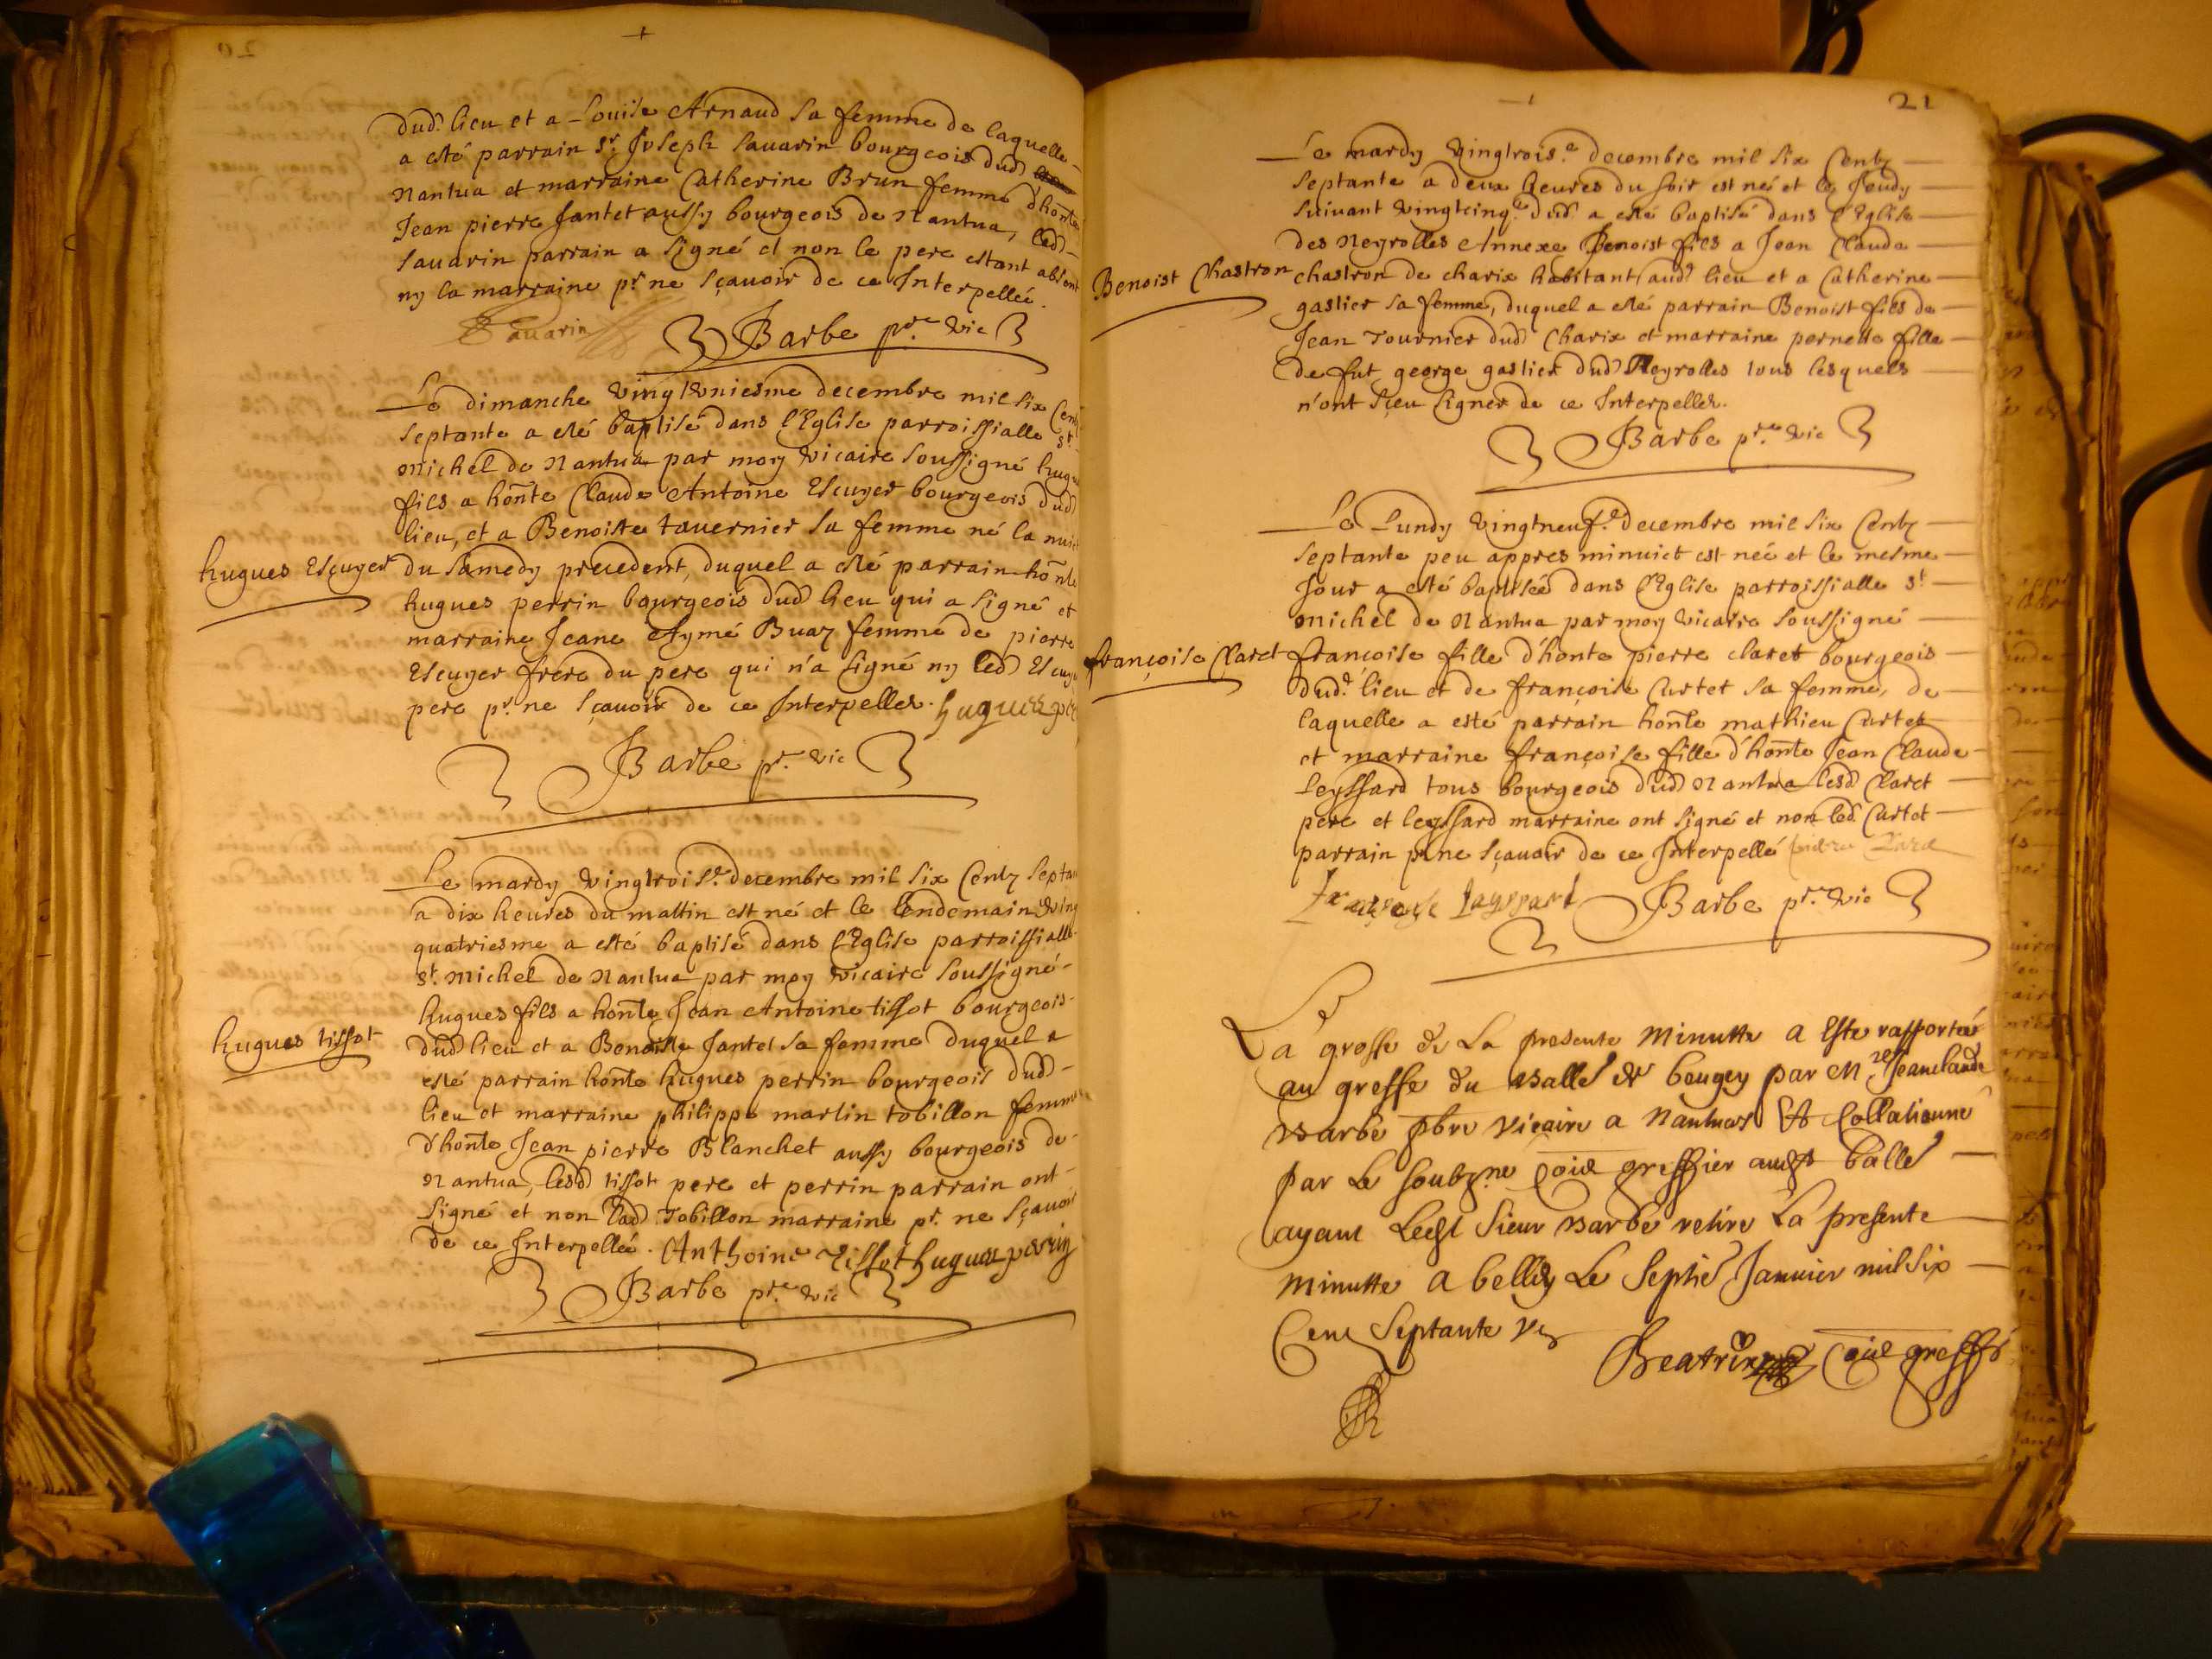 dud.t lieu et a Louise Arnaud sa femme de laquelle
a esté parrain s.r Joseph Savarin bourgeois dud.
Nantua et marraine Catherine Brun femme d'hon.te
Jean pierre Jantet aussy bourgeois de Nantua, led.
Savarin parrain a signé et non le pere estant absent
ny la marraine p.r ne sçavoir de ce Interpellée.
Savarin
Barbe p.re vic
Le dimanche vingtuniesme decembre mil six Centz
septante a esté baptisé dans l'Eglise parroissialle s.t
michel de Nantua par moy vicaire soussigné hugues
fils a hon.te Claude Antoine Escuyer bourgeois dud.
lieu, et a Benoiste tavernier sa femme né la nuict
hugues Escuyer
du samedy precedent, duquel a esté parrain hon.te
hugues perrin bourgeois dud. lieu qui a signé et
marraine Jeane Aymé Buaz femme de pierre
Escuyer frere du pere qui n'a signé ny led. Escuyer
pere p.r ne sçavoir de ce Interpellez. hugues
Barbe p.r vic
Le mardy vingtrois.e decembre mil six Centz septante
a dix heures du mattin est né et le lendemain vingt
quatriesme a esté baptisé dans l'Eglise parroissialle
s.t michel de Nantua par moy vicaire soussigné
hugues fils a hon.te Jean Antoine tissot bourgeois
hugues tissot
dud. lieu et a Benoiste Jantet sa femme duquel a
esté parrain hon.te hugues perrin bourgeois dud.
lieu et marraine philippe martin tobillon femme
d'hon.te Jean pierre Blanchet aussy bourgeois de
Nantua, lesd. tissot pere et perrin parrain ont
signé et non lad. Tobillon marraine p.r ne sçavoir
de ce Interpellée. Anthoine Tissot hugues perrin
Barbe p.re vic
21
Le mardy vingtrois.e decembre mil six Centz
septante a deux heures du soir est né et le Jeudy
suivant vingtcinq.e dud. a esté baptisé dans l'Eglise
des Neyrolles Annexe Benoist fils a Jean Claude
Benoist Chastron
chastron de charix habitant aud. lieu et a Catherine
gastier sa femme, duquel a esté parrain Benoist fils de
Jean Tournier dud. Charix et marraine pernette fille
de fut george gastier dud. Neyrolles tous lesquels
n'ont sçeu signer de ce Interpellez.
Barbe p.re vic
Le Lundy vingtneuf.e decembre mil six Centz
septante peu appres minuict est née et le mesme
Jour a esté baptisée dans l'Eglise parroissialle s.t
michel de Nantua par moy vicaire soussigné
françoise Claret
françoise fille d'hon.te pierre claret bourgeois
dud.t lieu et de françoise Curtet sa femme, de
laquelle a esté parrain hon.te mathieu Curtet
et marraine françoise fille d'hon.te Jean Claude
Leyssard tous bourgeois dud. Nantua lesd. Claret
pere et leyssard marraine ont signé et non led. Curtet
parrain p.r ne sçavoir de ce Interpellé
Françoise Layssard Barbe p.r vic
La grosse de La presente Minutte a Este rapportée
au greffe du Balle de beugey par M.re Jean claude
Barbe pbre vicaire a Nantua Et Collationné
par Le soubz.ne greffier audt balle
ayant Ledt sieur Barbe retire La presente
Minutte a belley Le Septie Janvier mil Six
Cent Septante Un